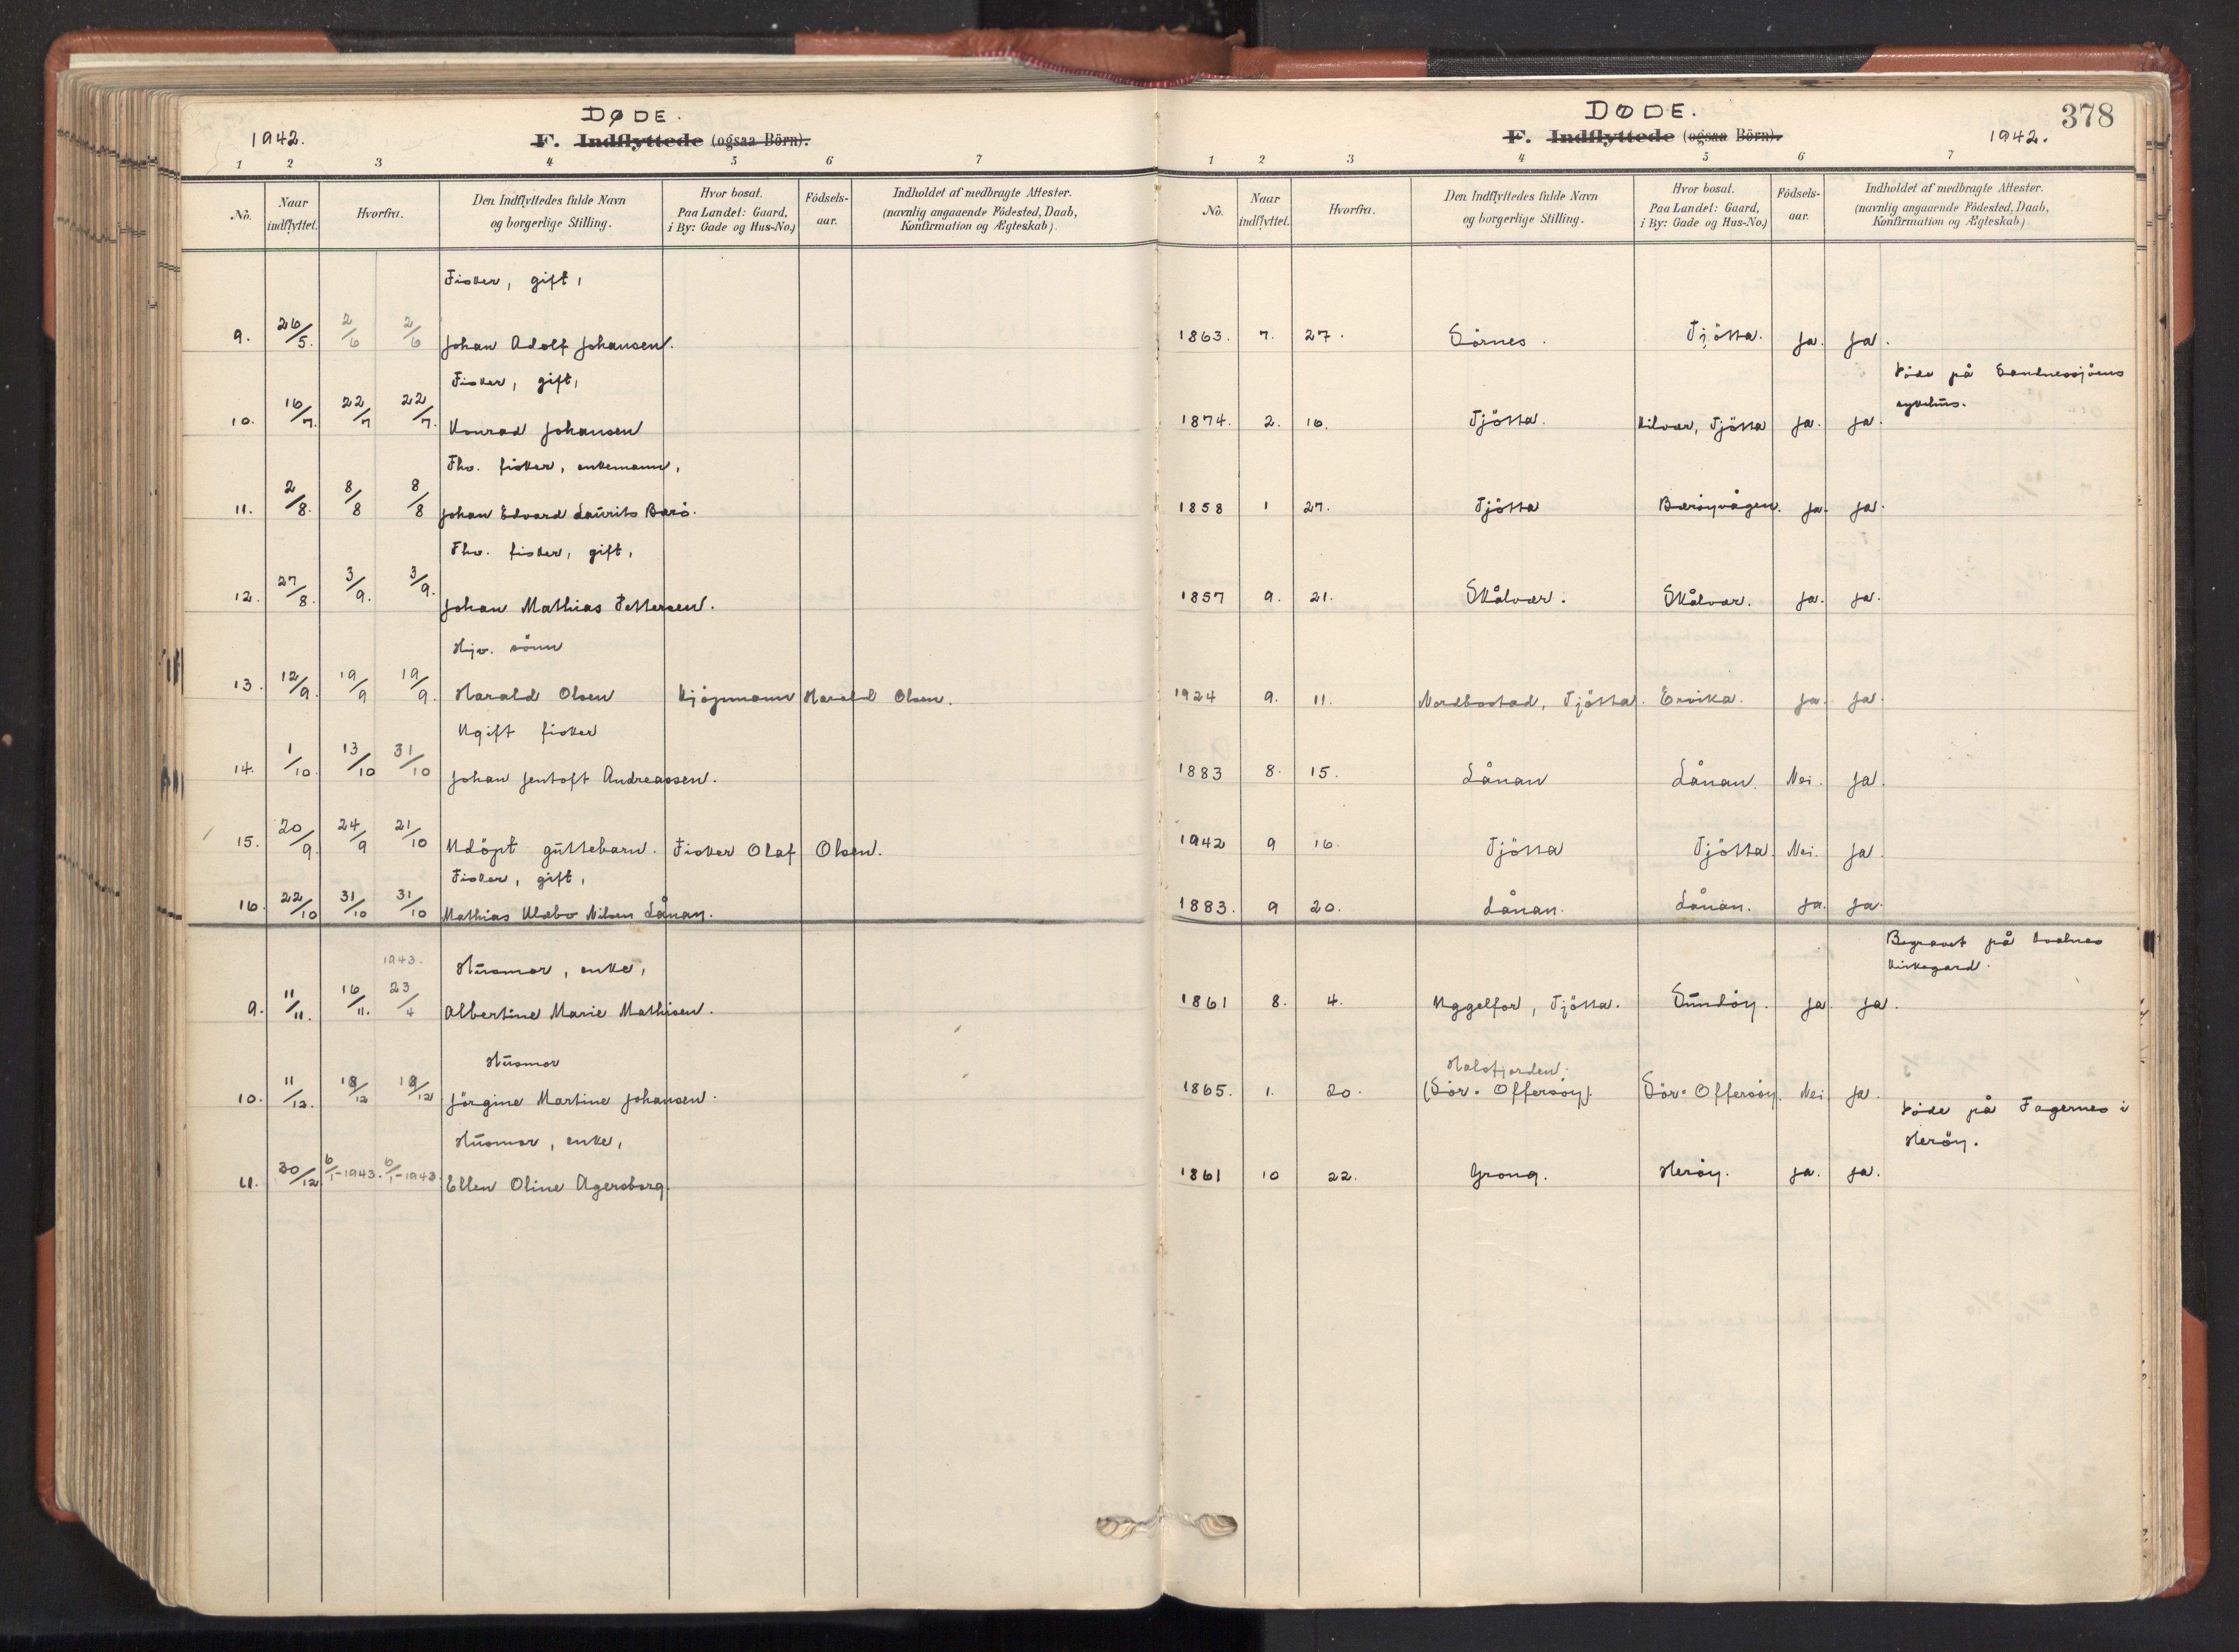 DØDE.
1942.
F. Indflyttede (ogsaa Börn).
1 2 3 4 5 6 7
No.
Naar indflyttet.
Hvorfra.
Den Indflyttedes fulde Navn
og borgerlige Stilling.
Hvor bosat.
Paa Landet: Gaard,
i By: Gade og Hus-No.)
Födsels-
aar.
Indholdet af medbragte Attester.
(navnlig angaaende Födested, Daab,
Konfirmation og Ægteskab).
Fisker, gift,
9. 26/5. 2/6 2/6 Johan Adolf Johansen.
Fisker, gift,
10. 16/7. 22/7 22/7. Konrad Johansen
Fhv. fisker, enkemann,
11. 2/8. 8/8 8/8 Johan Edvard Laurits Barö.
Fhv. fisker, gift,
12. 27/8. 3/9. 3/9. Johan Mathias Pettersen.
Hjv. sönn
13. 12/9. 19/9 19/9. Harald Olsen Kjöpmann Harald Olsen.
Ugift fisker
14. 1/10. 13/10 31/10 Johan Jentoft Andreassen.
15. 20/9. 24/9 21/10 Udöpt guttebarn. Fisker Olaf Olsen.
Fisker, gift,
16. 22/10 31/10 31/10 Mathias Klæbo Nilsen Lånan.
1943. Husmor, enke,
9. 11/11. 16/11. 23/4 Albertine Marie Mathisen.
Husmor
10. 11/12. 18/12 18/12 Jörgine Martine Johansen.
Husmor, enke,
11. 30/12 6/1-1943. 6/1-1943. Ellen Oline Agersborg.
DØDE.
378
F. Indflyttede (ogsaa Börn).
1942.
1 2 3 4 5 6 7
No.
Naar indflyttet.
Hvorfra.
Den Indflyttedes fulde Navn
og borgerlige Stilling.
Hvor bosat.
Paa Landet: Gaard,
i By: Gade og Hus-No.)
Födsels-
aar.
Indholdet af medbragte Attester.
(navnlig angaaende Födested, Daab,
Konfirmation og Ægteskab).
1863. 7. 27. Sörnes. Tjötta. Ja. Ja.
Döde på Sandnessjöens
sykehus.
1874. 2. 16. Tjötta. Kilvær, Tjötta Ja. Ja.
1858 1 27. Tjötta Bæröyvågen. Ja. Ja.
1857 9. 21. Skålvær. Skålvær. Ja. Ja.
1924 9. 11. Nordbostad, Tjötta. Ervika. Ja. Ja.
1883 8. 15. Lånan Lånan. Nei. Ja.
1942 9 16. Tjötta Tjötta. Nei. Ja.
1883. 9 20. Lånan. Lånan. Ja. Ja.
Begravet på
kirkegard.
1861 8. 4. Uggelfor, Tjötta. Sundöy. Ja. Ja.
Halsfjorden.
1865. 1. 20. (Sör-Offersöy). Sör-Offersöy. Nei Ja.
Döde på Fagernes i
Heröy.
1861 10 22. Grong. Heröy. Ja. Ja.